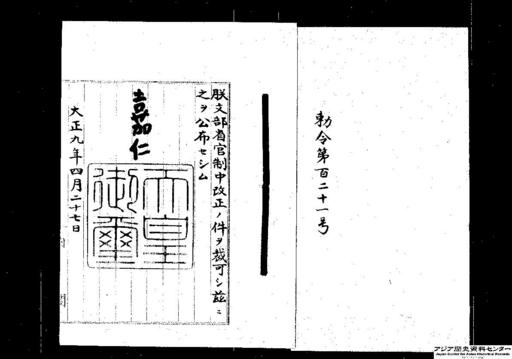 勅令第百二十一号
朕文部省官制中改正ノ件ヲ裁可シ茲ニ
之ヲ公布セシム
嘉仁
天皇
御璽
大正九年四月二十七日
アジア歴史資料センター
Japan Center for Asian Historical Records